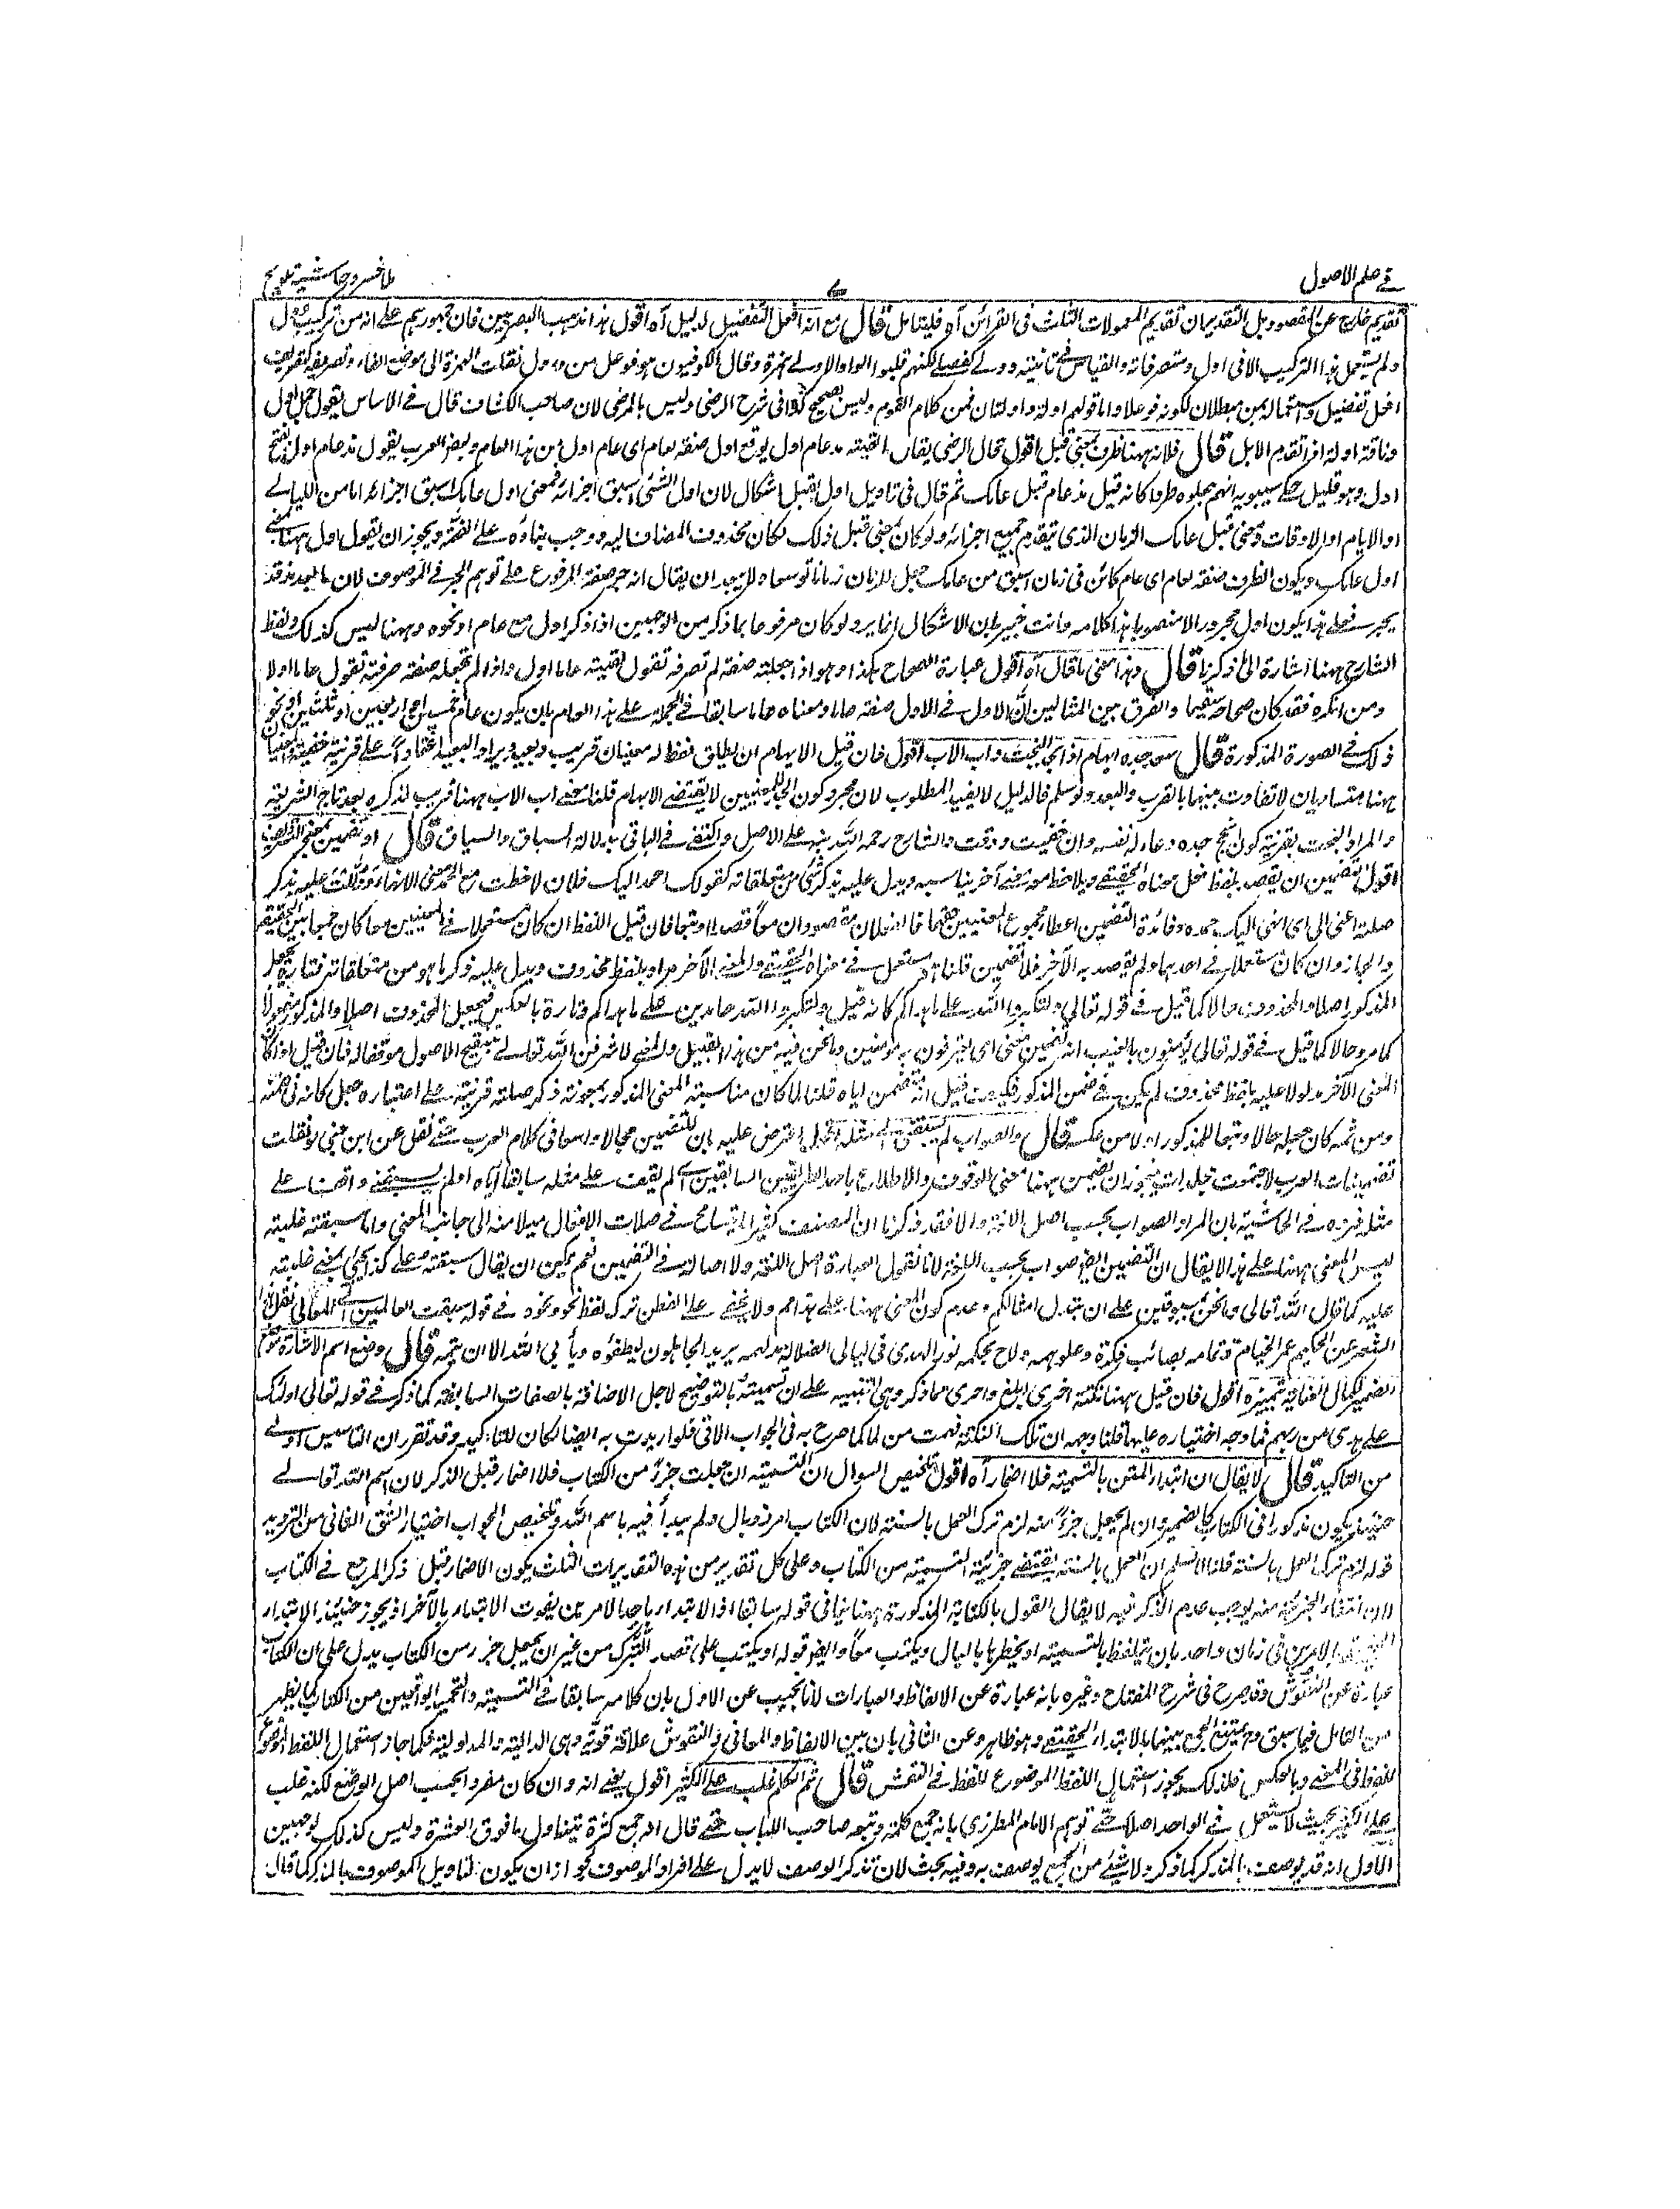 في علم الاصول
ملا خسرو حاشية تلويح
تقديم خارج عن المقصود بل التقدير ان تقديم المعمولات الثلث فى القرائن آه فليتامل قال مع انه افعل التفضيل لدليل آه اقول هذا مذهب البصريين فان جمهورهم على انه من تركيب وول
ولم يستعمل هذا التركيب الا فى اول ومتصرفاته والقياس فى تانيثه وولى كفضلى لكنهم قلبوا الواو الاولى همزة وقال الكوفيون هو فوعل من وءل نقلت الهمزة الى موضع الفاء وتصريفه كتصريف
افعل تفضيل واستعماله بمن مبطلان لكونه فوعلا واما قولهم اولة واولتان فمن كلام العوام وليس بصحيح كذا فى شرح الرضى وليس بالمرضى لان صاحب الكشاف قال فى الاساس يقول جمل اول
وناقة اولة اذا تقدم الابل قال فلانه ههنا ظرف بمعنى قبل اقول قال الرضى يقال القيته مذ عام اول يوقع اول صفة لعام اى عام اول من هذا العام وبعض العرب يقول مذ عام اول بفتح
اول وهو قليل حكى سيبويه انهم جعلوه ظرفا كانه قيل مذ عام قبل عامك ثم قال فى تاويل اول بقبل اشكال لان اول الشئ اسبق اجزائه فمعنى اول عامك اسبق اجزائه اما من الليالى
او الايام او الاوقات ومعنى قبل عامك الزمان الذى يتقدم جميع اجزائه ولو كان بمعنى قبل ذلك لكان محذوف المضاف اليه ووجب بناؤه على الضمة ويجوز ان يقول اول ههنا بمعنى
اول عامك ويكون الظرف صفة لعام اى عام كائن فى زمان اسبق من عامك جعل للزمان زمانا توسعا ولا يبعد ان يقال انه جر صفة المرفوع على توهم الجر فى الموصوف لان ما بعد مذ قد
يجر فعلى هذا يكون اول مجرورا لا منصوبا هذا كلامه وانت خبير بان الاشكال انما يرد لو كان مرفوعا بما ذكر من الوجهين اذا ذكر اول مع عام او نحوه وههنا ليس كذلك ولفظ
الشارح ههنا اشارة الى ما ذكرنا قال وهذا معنى ما قال آه اقول عبارة الصحاح هكذا وهو اذا جعلته صفة لم تصرفه تقول لقيته عاما اول واذا لم تجعله صفة صرفته تقول عاما اولا
ومن انكره فقد كان صحاحه سقيما والفرق بين المثالين ان الاول فى الاول صفة عاما ومعناه عاما سابقا فى الجملة على هذا العام بان يكون عام خمس اواربعين او ثلثين او نحو
ذلك فى الصورة المذكورة قال سعد جده ايهام اذ الجد البخت واب الاب اقول فان قيل الايهام ان يطلق لفظ له معنيان قريب وبعيد ويراد البعيد اعتمادا على قرينة خفية والمعنيان
ههنا متساويان لا تفاوت بينهما بالقرب والبعد ولو سلم فالدليل لا يفيد المطلوب لان مجرد كون الجد لمعنيين لا يقتضى الايهام قلنا معنى اب الاب ههنا قريب لذكره بعد تاج الشريعة
والمراد البخت بقرينة كون انجح جده دعاء لنفسه وان خفيت ودقت والشارح رحمه الله نبه على الاصل واكتفى فى الباقى بدلالة السباق والسياق قال او تضمين معنى
اقول التضمين ان يقصد بلفظ فعل معناه الحقيقى ويلاحظ معه معنى آخر يناسبه ويدل عليه بذكر شئ من متعلقاته كقولك احمد اليك فلان لاحظت مع الحمد معنى الانهاء ودللت عليه بذكر
صلته اعنى الى اى انهى اليك حمده وفائدة التضمين اعطاء مجموع المعنيين حقهما فالفعلان مقصودان معا قصدا وتبعا فان قيل اللفظ ان كان مستعملا فى المعنيين معا كان جمعا بين الحقيقة
والمجاز وان كان مستعملا فى احدهما ولم يقصد به الآخر فلا تضمين قلنا هو مستعمل فى معناه الحقيقى والمعنى الآخر مراد بلفظ محذوف ويدل عليه ذكر ما هو من متعلقاته فتارة يجعل
المذكور اصلا والمحذوف حالا كما قيل فى قوله تعالى ولتكبروا الله على ما هداكم كانه قيل ولتكبروا الله حامدين على ما هداكم وتارة بالعكس فيجعل المحذوف اصلا والمذكور مفعولا
كما مر او حالا كما قيل فى قوله تعالى يؤمنون بالغيب انه تضمين معنى اى يعترفون به مؤمنين وما نحن فيه من هذا القبيل والمعنى لما شرفنى الله تعالى بتنقيح الاصول موقفا له فان قيل اذا كان
المعنى الآخر مدلولا عليه بلفظ محذوف لم يكن فى ضمن المذكور فكيف قيل انه متضمن اياه قلنا لما كان مناسبة المعنى المذكور بمعونة ذكر صلته قرينة على اعتباره جعل كانه فى ضمنه
ومن ثمه كان جعله حالا وتبعا للمذكور اولى من عكسه قال والصواب لم يسبقنى الى مثله احد اعترض عليه بان للتضمين مجالا واسعا فى كلام العرب حتى نقل عن ابن جنى لو نقلت
تضمينات العرب لاجتمعت مجلدات فيجوز ان يضمن ههنا معنى الوقوف والاطلاع باحد الطريقين السابقين اى لم يقف على مثله سابقا اياه او لم يسبقنى واقفا على
مثله فرده فى الحاشية بان المراد الصواب بحسب اصل اللغة والا فقد ذكرنا ان المصنف كثيرا ما يتسامح فى صلات الافعال ميلا منه الى جانب المعنى واما سبقته غلبته
ليس المعنى ههنا على هذا لا يقال ان التضمين ايضا صواب بحسب اللغة لانا نقول العبارة اصل اللغة ولا اصالة فى التضمين نعم يمكن ان يقال سبقته على كذا يجئ بمعنى غلبته
عليه كما قال الله تعالى وما نحن بمسبوقين على ان نبدل امثالكم وعدم كون المعنى ههنا على هذا مم ولا يخفى على الفطن ترك لفظ نحو ونحوه فى قوله سبقت العالمين الى المعالى نقل هذا
الشعر عن الحكيم عمر الخيام وتمامه بصائب فكرة وعلو همه ولاح بحكمه نور الهدى فى ليالى الضلالة مدلهمه يريد الجاهلون ليطفؤه ويأبى الله الا ان يتمه قال وضع اسم الاشارة موضع
الضمير لكمال العناية بتمييزه اقول فان قيل ههنا نكتة اخرى ابلغ واحرى مما ذكر وهى التنبيه على ان تسميته بالتوضيح لاجل الاضافة بالصفات السابقة كما ذكر فى قوله تعالى اولئك
على هدى من ربهم فما وجه اختياره عليها قلنا وجهه ان تلك النكتة فهمت من لما كما صرح به فى الجواب الاتى فلو اريدت به ايضا لكان للتاكيد وقد تقرر ان التاسيس اولى
من التاكيد قال لا يقال ان ابتداء المتن بالتسمية فلا اضمار آه اقول تلخيص السوال ان التسمية ان جعلت جزء من الكتاب فلا اضمار قبل الذكر لان اسم الله تعالى
حينئذ يكون مذكورا فى الكتاب كالضمير وان لم يجعل جزء منه لزم ترك العمل بالسنة لان الكتاب امر ذو بال ولم يبدأ فيه باسم الله وتلخيص الجواب اختيار الشق الثانى من الترديد
قوله لزم ترك العمل بالسنة قلنا لا نسلم ان العمل بالسنة يقتضى جزئية التسمية من الكتاب وعلى كل تقدير من هذه التقديرات الثلث يكون الاضمار قبل ذكر المرجع فى الكتاب
لان انتفاء الجزئية منه يوجب عدم الذكر فيه لا يقال القول بالكتابة المذكورة ههنا ينافى قوله سابقا اذ الابتداء باحد الامرين يفوت الابتداء بالآخر اذ يجوز حينئذ الابتداء
الامرين فى زمان واحد بان يتلفظ بالتسمية او يخطرها بالبال ويكتب معا وايضا قوله او يكتب على قصد التبرك من غير ان يجعل جزء من الكتاب يدل على ان الكتاب
عبارة عن النقوش وقد صرح فى شرح المفتاح وغيره بانه عبارة عن الالفاظ والعبارات لانا نجيب عن الاول بان كلامه سابقا فى التسمية والتحميد الواقعين من الكتاب كما يظهر
من التامل فيما سبق ويمتنع الجمع بينهما بالابتداء الحقيقى وهو ظاهر وعن الثانى بان بين الالفاظ والمعانى والنقوش علاقة قوية وهى الدالية والمدلولية فكما جاز استعمال اللفظ الموضوع
للفظ فى المعنى وبالعكس فلذلك يجوز استعمال اللفظ الموضوع للفظ فى النقش قال ثم الكلم غلب على الكثير اقول يعنى انه وان كان مفردا بحسب اصل الوضع لكنه غلب
على الكثير بحيث لا يستعمل فى الواحد اصلا حتى توهم الامام المطرزى بانه جمع كلمة وتبعه صاحب اللباب حتى قال انه جمع كثرة يتناول ما فوق العشرة وليس كذلك لوجهين
الاول انه قد يوصف بالمذكر كما ذكر ولا شئ من الجمع يوصف به وفيه بحث لان تذكر الوصف لا يدل على افراد الموصوف لجواز ان يكون لتاويل الموصوف بالمذكر كما قال